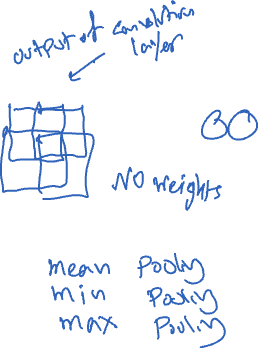 output of convolution
layer
NO weights
mean Pooling
min Pooling
max Pooling